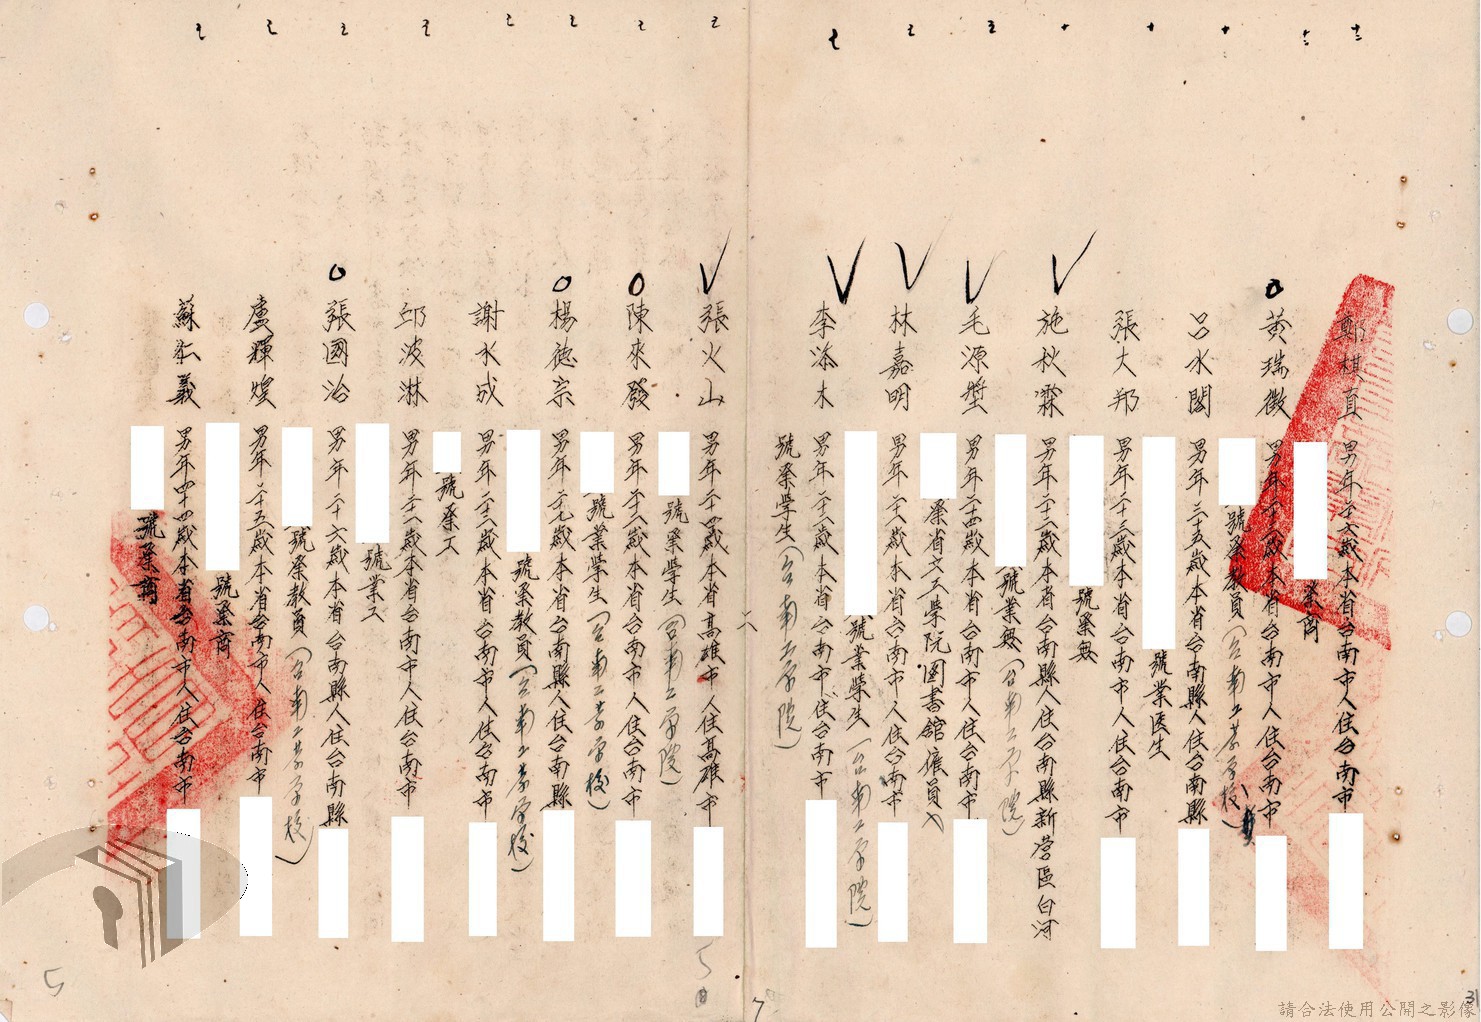 十二 十二 十 十 十 五 七 七 七 七 七 七 七 七 七 七 七
鄭棋真 男年六歲本省台南市人住台南市
業商
黃瑞徵 男年歲本省台南市人住台南市
號業教員(台南工業學校)
呂水閣 男年三五歲本省台南縣人住台南縣
號業医生
張大邦 男年二十三歲本省台南市人住台南市
號業無
施秋霖 男年二十二歲本省台南縣人住台南縣新營區白河
號業無(台南工學院)
毛源 男年二十四歲本省台南市人住台南市
業省立工學院图書館僱員
林嘉明 男年二十八歲本省台南市人住台南市
號業學生(台南工學院)
李添木 男年二十歲本省台南市住台南市
號業學生(台南工學院)
張火山 男年二十四歲本省高雄市人住高雄市
號業學生(台南工學院)
陳來發 男年二十歲本省台南市人住台南市
號業學生(台南工業學校)
楊德宗 男年二七歲本省台南縣人住台南縣
號業教員(台南工業學校)
謝水成 男年二十歲本省台南市人住台南市
號業工
邱波淋 男年二十歲本省台南市人住台南市
號業工
張國治 男年二十六歲本省台南縣人住台南縣
號業教員(台南工業學校)
盧輝煌 男年二五歲本省台南市人住台南市
號業商
蘇仁義 男年四十四歲本省台南市人住台南市
號業商
5
7
31
請合法使用公開之影像